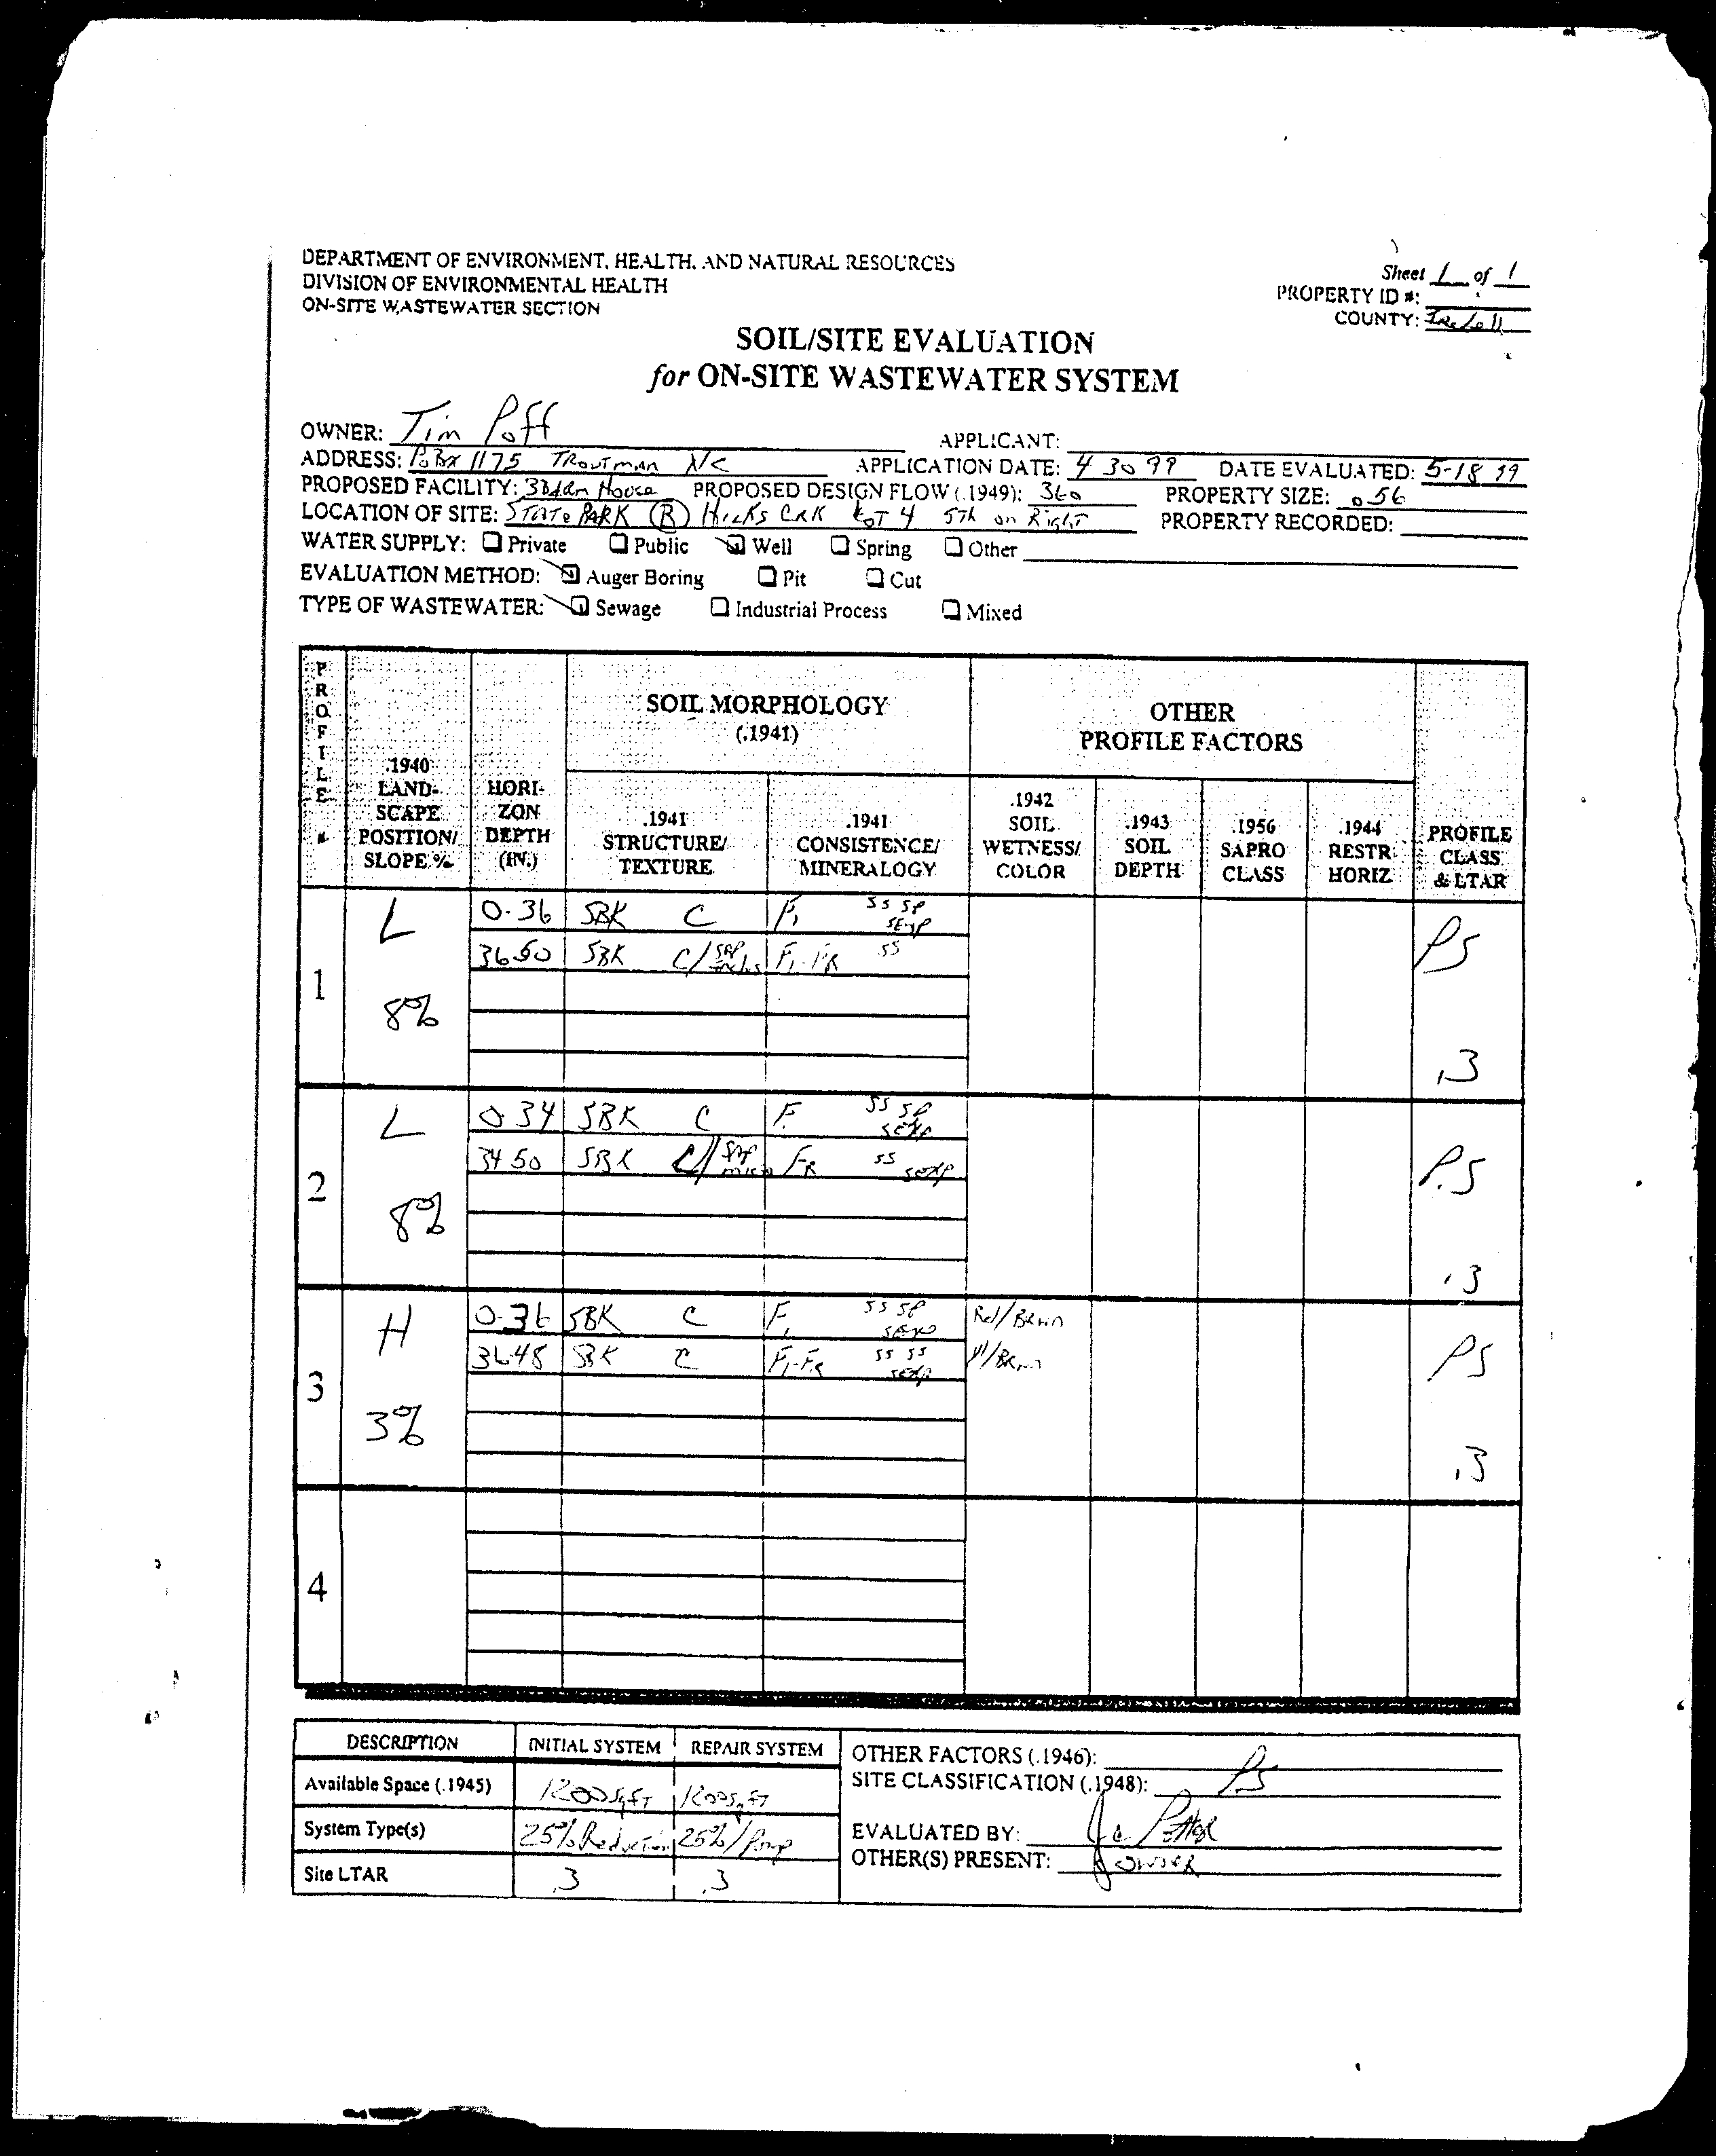 DEPARTMENT OF ENVIRONMENT, HEALTH, AND NATURAL RESOURCES
DIVISION OF ENVIRONMENTAL HEALTH
ON-SITE WASTEWATER SECTION
Sheet 1 of 1
PROPERTY ID #:
COUNTY: Iredell
SOIL/SITE EVALUATION
for ON-SITE WASTEWATER SYSTEM
OWNER: Tim Poff APPLICANT:
ADDRESS: PoBox 1175 Troutman NC APPLICATION DATE: 4 30 99 DATE EVALUATED: 5-18 99
PROPOSED FACILITY: 3Bdrm House PROPOSED DESIGN FLOW (.1949): 360 PROPERTY SIZE: .56
LOCATION OF SITE: STATE PARK (R) HICKS CRK LOT 4 5th on Right PROPERTY RECORDED:
WATER SUPPLY: Private Public Well Spring Other
EVALUATION METHOD: Auger Boring Pit Cut
TYPE OF WASTEWATER: Sewage Industrial Process Mixed
PROFILE #
.1940 LAND-SCAPE POSITION/ SLOPE %
HORI-ZON DEPTH (IN.)
SOIL MORPHOLOGY (.1941)
.1941 STRUCTURE/ TEXTURE
.1941 CONSISTENCE/ MINERALOGY
OTHER PROFILE FACTORS
.1942 SOIL WETNESS/ COLOR
.1943 SOIL DEPTH
.1956 SAPRO CLASS
.1944 RESTR HORIZ
PROFILE CLASS & LTAR
1 L 8%
0-36 SBK C Fi SS SP SEXP
36-50 SBK C/SAP Fi-FR SS
PS .3
2 L 8%
0-34 SBK C F SS SP SEXP
34 50 SBK C/SAP mica FR SS SEXP
P.S .3
3 H 3%
0-36 SBK C Fi SS SP SEXP Rd/Brwn
36-48 SBK C Fi-FR SS SS SEXP Yl/Brwn
PS .3
4
DESCRIPTION INITIAL SYSTEM REPAIR SYSTEM
Available Space (.1945) 1200 sqFT 1200 sqFT
System Type(s) 25% Reduction 25%/Pump
Site LTAR .3 .3
OTHER FACTORS (.1946):
SITE CLASSIFICATION (.1948): PS
EVALUATED BY:
OTHER(S) PRESENT: OWNER